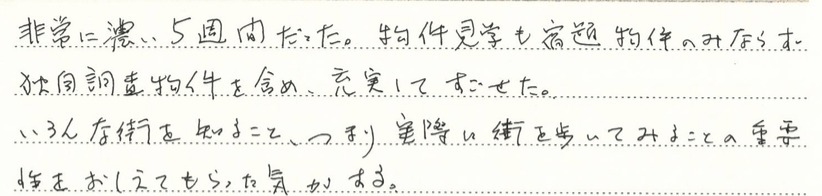 非常に濃い5週間だった。物件見学も宿題物件のみならず
独自調査物件を含め、充実してすごせた。
いろんな街を知ること、つまり実際に街を歩いてみることの重要
性をおしえてもらった気がする。